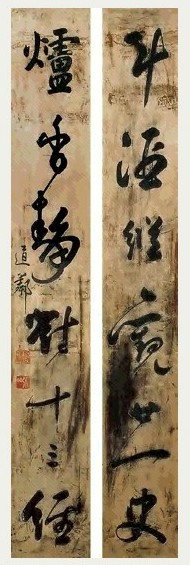 斗酒縱觀廿一史
爐香靜對十三經
道鄰